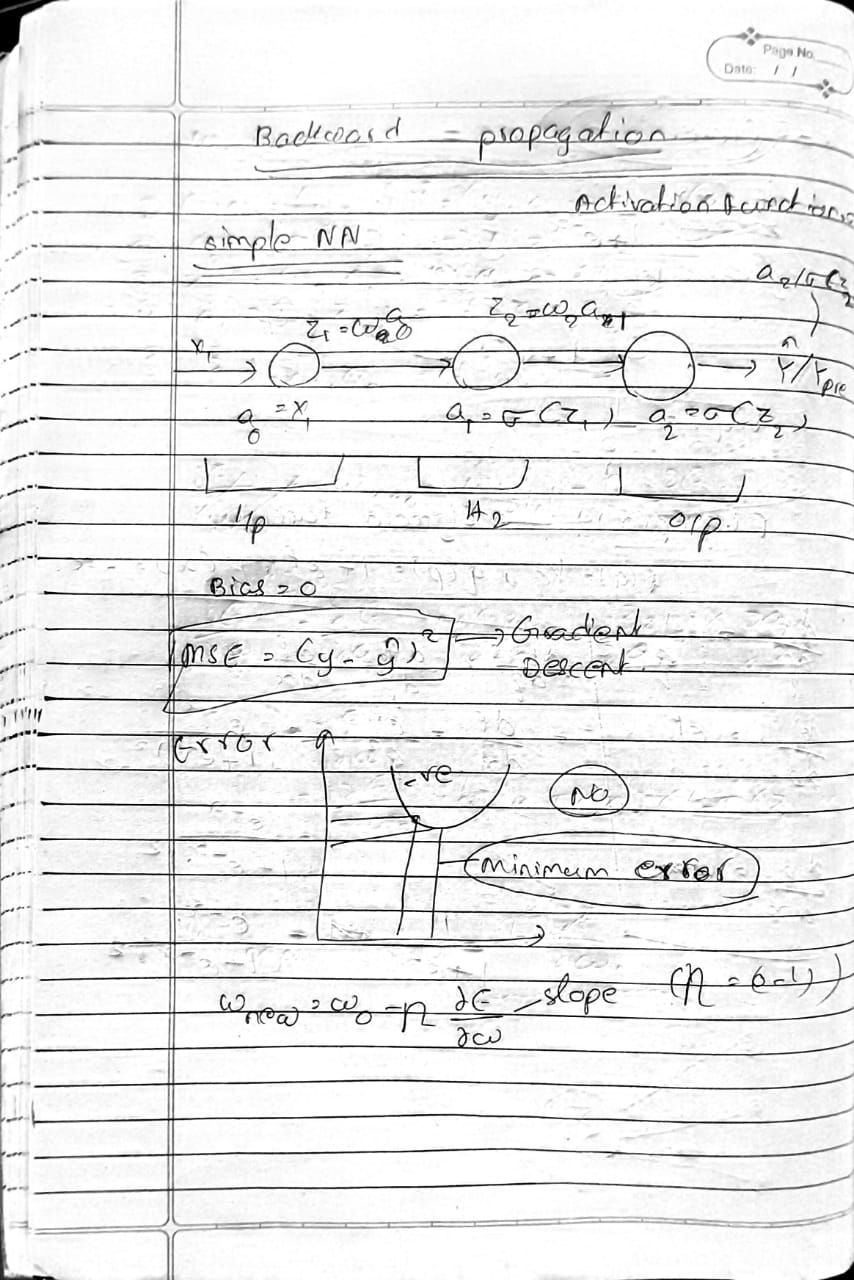 Page No.
Date: / /
Backward - propagation
Activation functions
simple NN
a₂/σ(z₂
z₁ = ω a₀ z₂ = ω₂ a₁
x₁ ŷ/Ypre
a₀ = x₁ a₁ = σ(z₁) a₂ = σ(z₂)
I/p H₂ O/p
Bias = 0
MSE = (y - ŷ)² → Gradient
Descent
Error
-ve No
minimum error
ωnew = ω₀ - η ∂E/∂ω slope (η = 0-1)